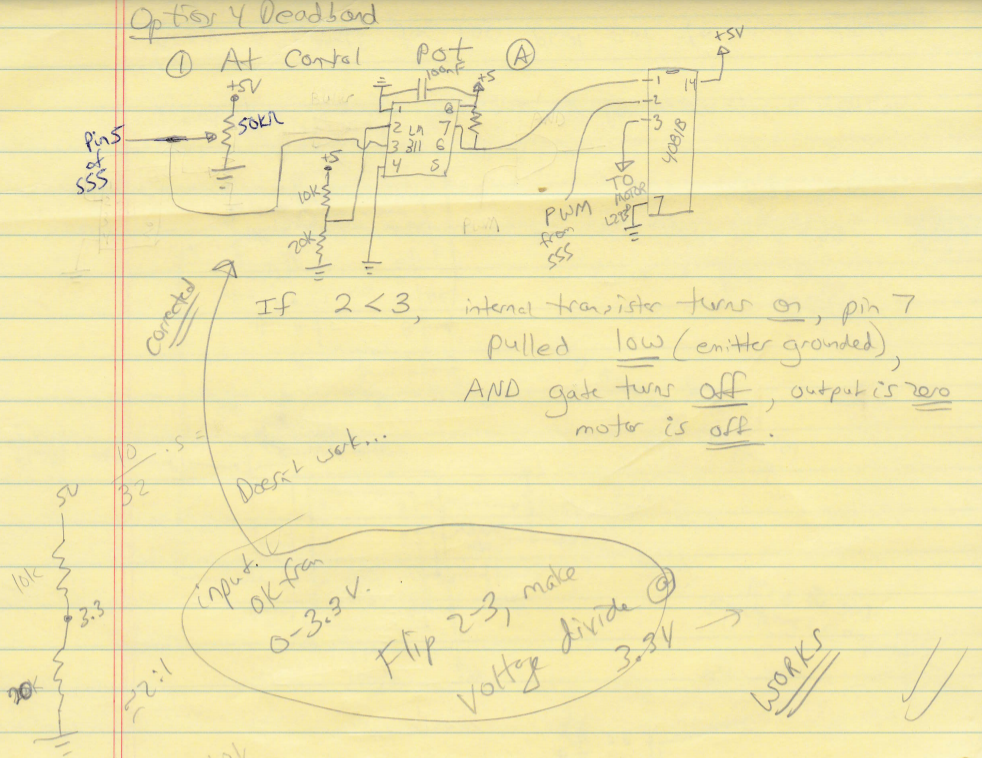 Option 4 Deadband
① At Contral Pot Ⓐ
+5V
50KΩ
Pin 5
of
SSS
100nF
+5
1 8
2 LM 7
3 311 6
4 5
+5
10K
20K
+5V
1 14
2
3
4081B
7
TO
MOTOR
PWM
from
SSS
PWM
Corrected
If 2<3, internal transister turns on, pin 7
pulled low (emitter grounded),
AND gate turns off, output is zero
motor is off.
10
32
.5=
Doesn't work...
5V
10K
3.3
20K
input.
OK from
0-3.3V.
Flip 2-3, make
voltage divide @
3.3V
WORKS